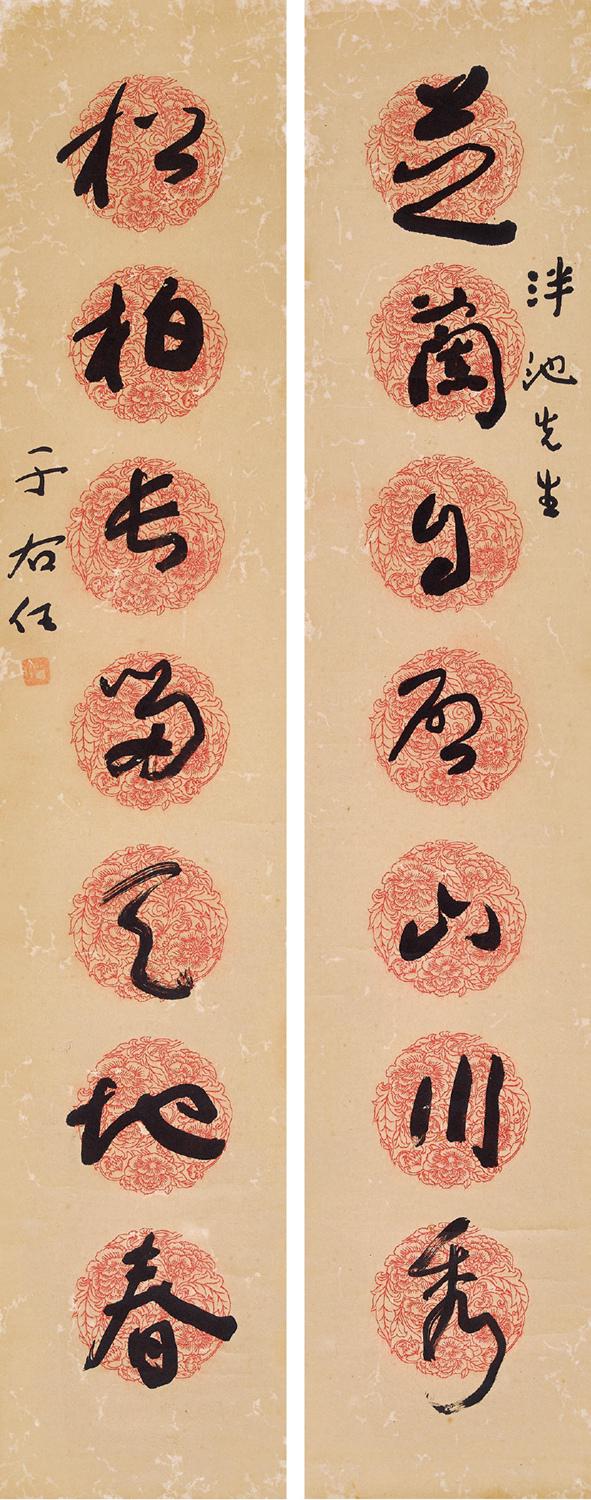 泮池先生
芝蘭自啟山川秀
松柏長留天地春
于右任